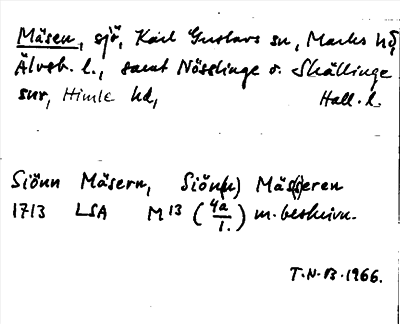 Mäsen, sjö, Karl Gustavs sn, Marks hd,
Älvsb. l., samt Nösslinge o. Skällinge
snr, Himle hd, Hall. l.
Siönn Mäsern, Siön(n) Mäs(s)eren
1713 LSA M 13 (4a/1.) m. beskrivn.
T.N.B. 1966.